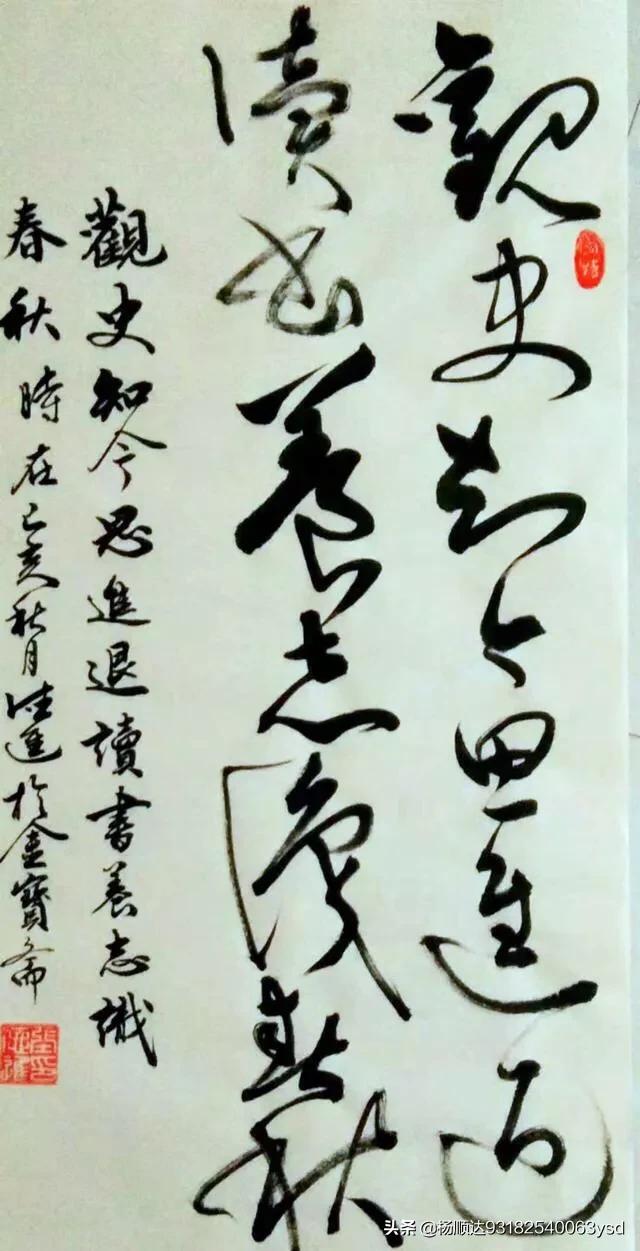 觀史知今思進退
讀書養志識春秋
觀史知今思進退讀書養志識
春秋時在己亥秋月佳進於金寶斋
头条 @杨顺达93182540063ysd